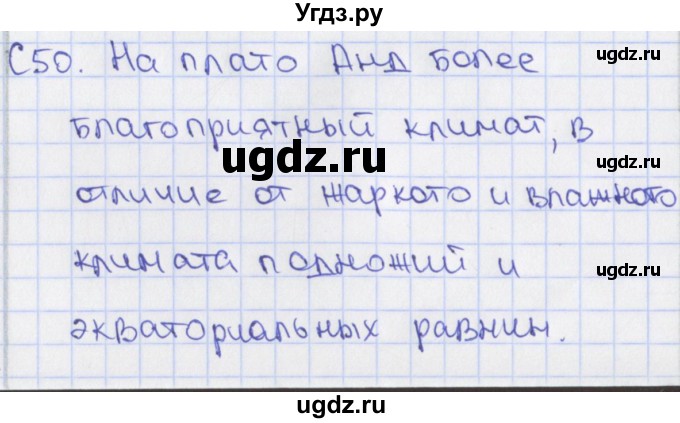 Угдз.ру
С50. На плато Анд более
ugdz.ru
благоприятный климат, в
ugdz.ru
ugdz.ru
отличие от жаркого и влажного
климата подножий и
ugdz.ru
экваториальных равнин.
ugdz.ru
ugdz.ru